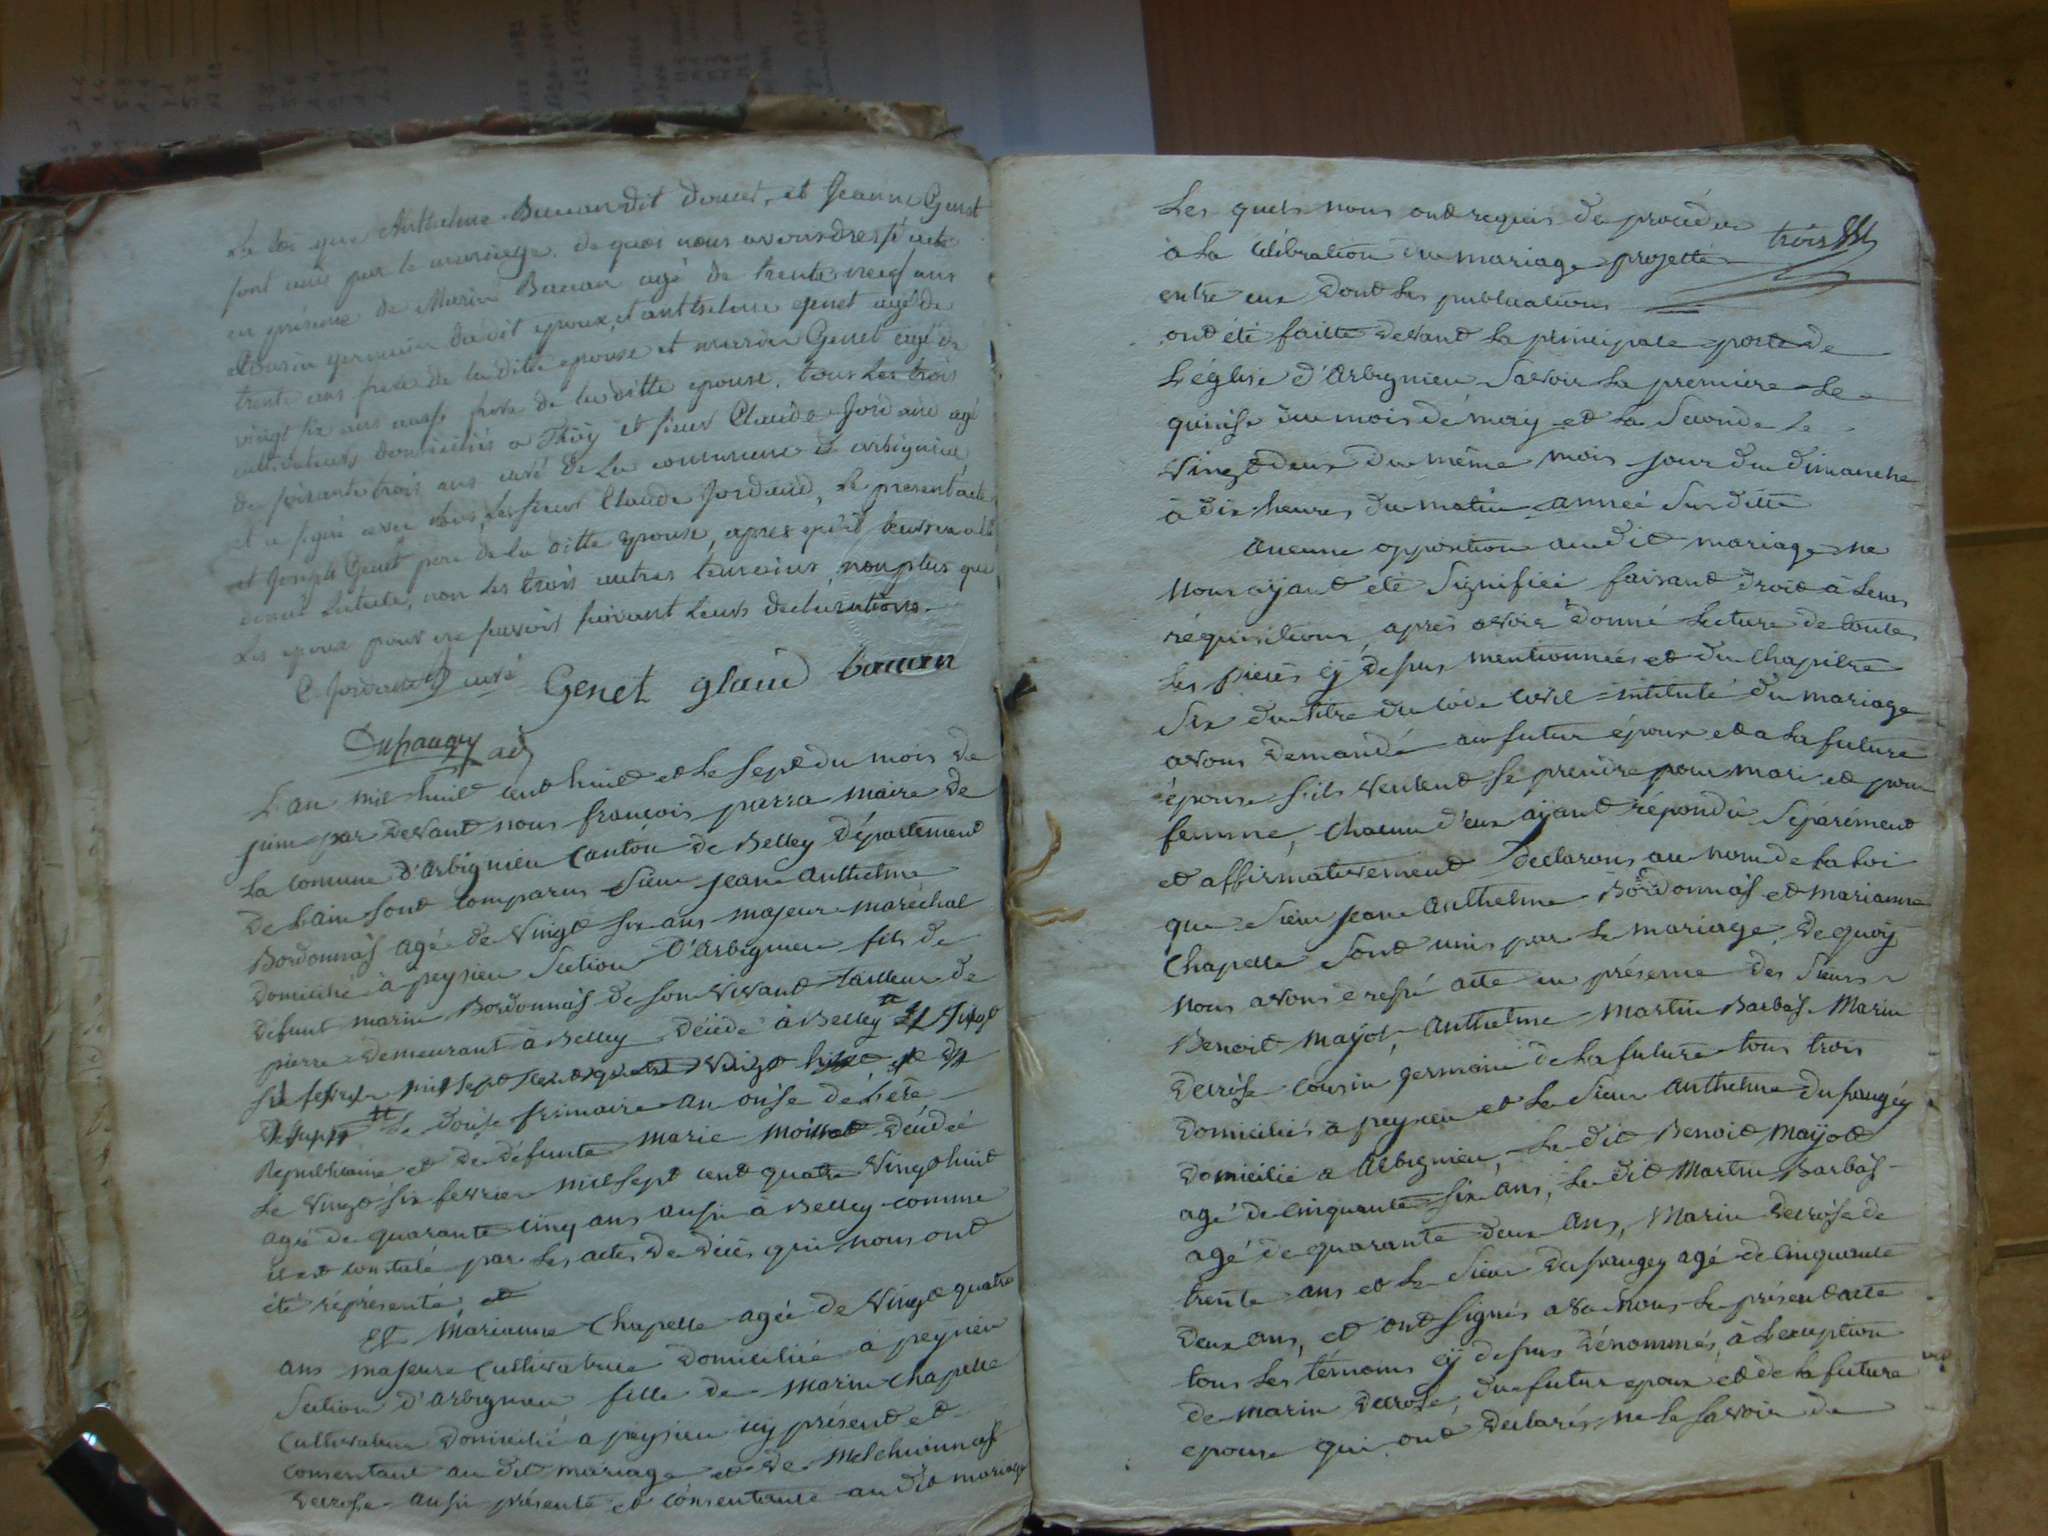 la loi que Anthelme Bavan dit Doucet, et Jeanne Genet
sont unis par le mariage. de quoi nous avons dressé acte
en présence de Marin Bavan agé de trente neuf ans
cousin germain dudit epoux, et anthelme genet agé de
trente ans frere de la ditte epouse et marin Genet agé de
vingt six ans aussi frere de la ditte epouse, tous les trois
cultivateurs domiciliés a Thoÿ et sieur Claude Jordand agé
de soixante trois ans curé de la commune d'arbignieu,
et a signé avec nous, le sieur Claude Jordand, le present acte
et Joseph Genet pere de la ditte epouse, apres qu'il leur en a été
donné lecture, non les trois autres temoins, non plus que
les epoux pour ne savoir suivant leurs declarations.
C. Jordand curé Genet glaud bavan
Dupaugey adj
L'an mil huit cent huit et le sept du mois de
juin par devant nous françois parra maire de
la comune d'Arbignieu Canton de Belley Département
de L'ain sont comparus sieur jean anthelme
Bordonnas agé de vingt six ans majeur maréchal
domicilié à peyzieu section D'Arbignieu fils de
defunt marin Bordonnas de son vivant tailleur de
pierre demeurant à Belley décédé à Belley
mil sept cent quatre vingt huit
le douse frimaire an onse de L'ere
Republicaine et de défunte marie décédée
le vingt six fevrier mil sept cent quatre vingt huit
agée de quarante cinq ans ausi à Belley comme
il est constaté par les actes de décès qui nous ont
été réprésenté, et
Et Marianne Chapelle agée de vingt quatre
ans majeure cultivatrice domiciliée à peyzieu
section d'Arbignieu fille de marin chapelle
cultivateur domicilié a peyzieu icy présent et
consentant au dit mariage et de
decrose ausi présente et consentante au dit mariage
Les quels nous ont requis de procéder
à la célébration du mariage projetté
trois
entre eux dont les publications
ont été faitte devant la principale porte de
L'église d'Arbignieu savoir la premiere le
quinse du mois de may et la seconde le
vingt deux du même mois jour du dimanche
à dix heures du matin année sus ditte
Aucune opposition audit mariage ne
nous ayant eté signifiée faisant droit à leurs
réquisitions, après avoir donné lecture de toutes
les pieces cÿ desus mentionnées et du chapitre
six du titre du code civil intitulé du mariage
avons demandé au futur époux et a la future
épouse s'ils veulent se prendre pour mari et pour
femme, chacun d'eux ayant répondu séparément
et affirmativement Declarons au nom de la loi
que sieur jean anthelme Bordonnas et marianne
Chapelle sont unis par le mariage, de quoÿ
nous avons dressé acte en présence des sieurs
Benoit mayot, anthelme martin Barbas, Marin
decrose cousin germain de la future tous trois
domiciliés à peyzieu et le sieur anthelme dupaugey
domicilié à Arbignieu, Le dit Benoit Mayot
agé de cinquante six ans, le dit Martin Barbas
agé de quarante deux ans, Marin decrose de
trente ans et le sieur dupaugey agé de cinquante
deux ans, et ont signés avec nous le présent acte
tous les témoins cÿ desus dénommés, à L'exception
de marin decrose, du futur epoux et de la future
epouse qui ont déclarés ne le savoir de